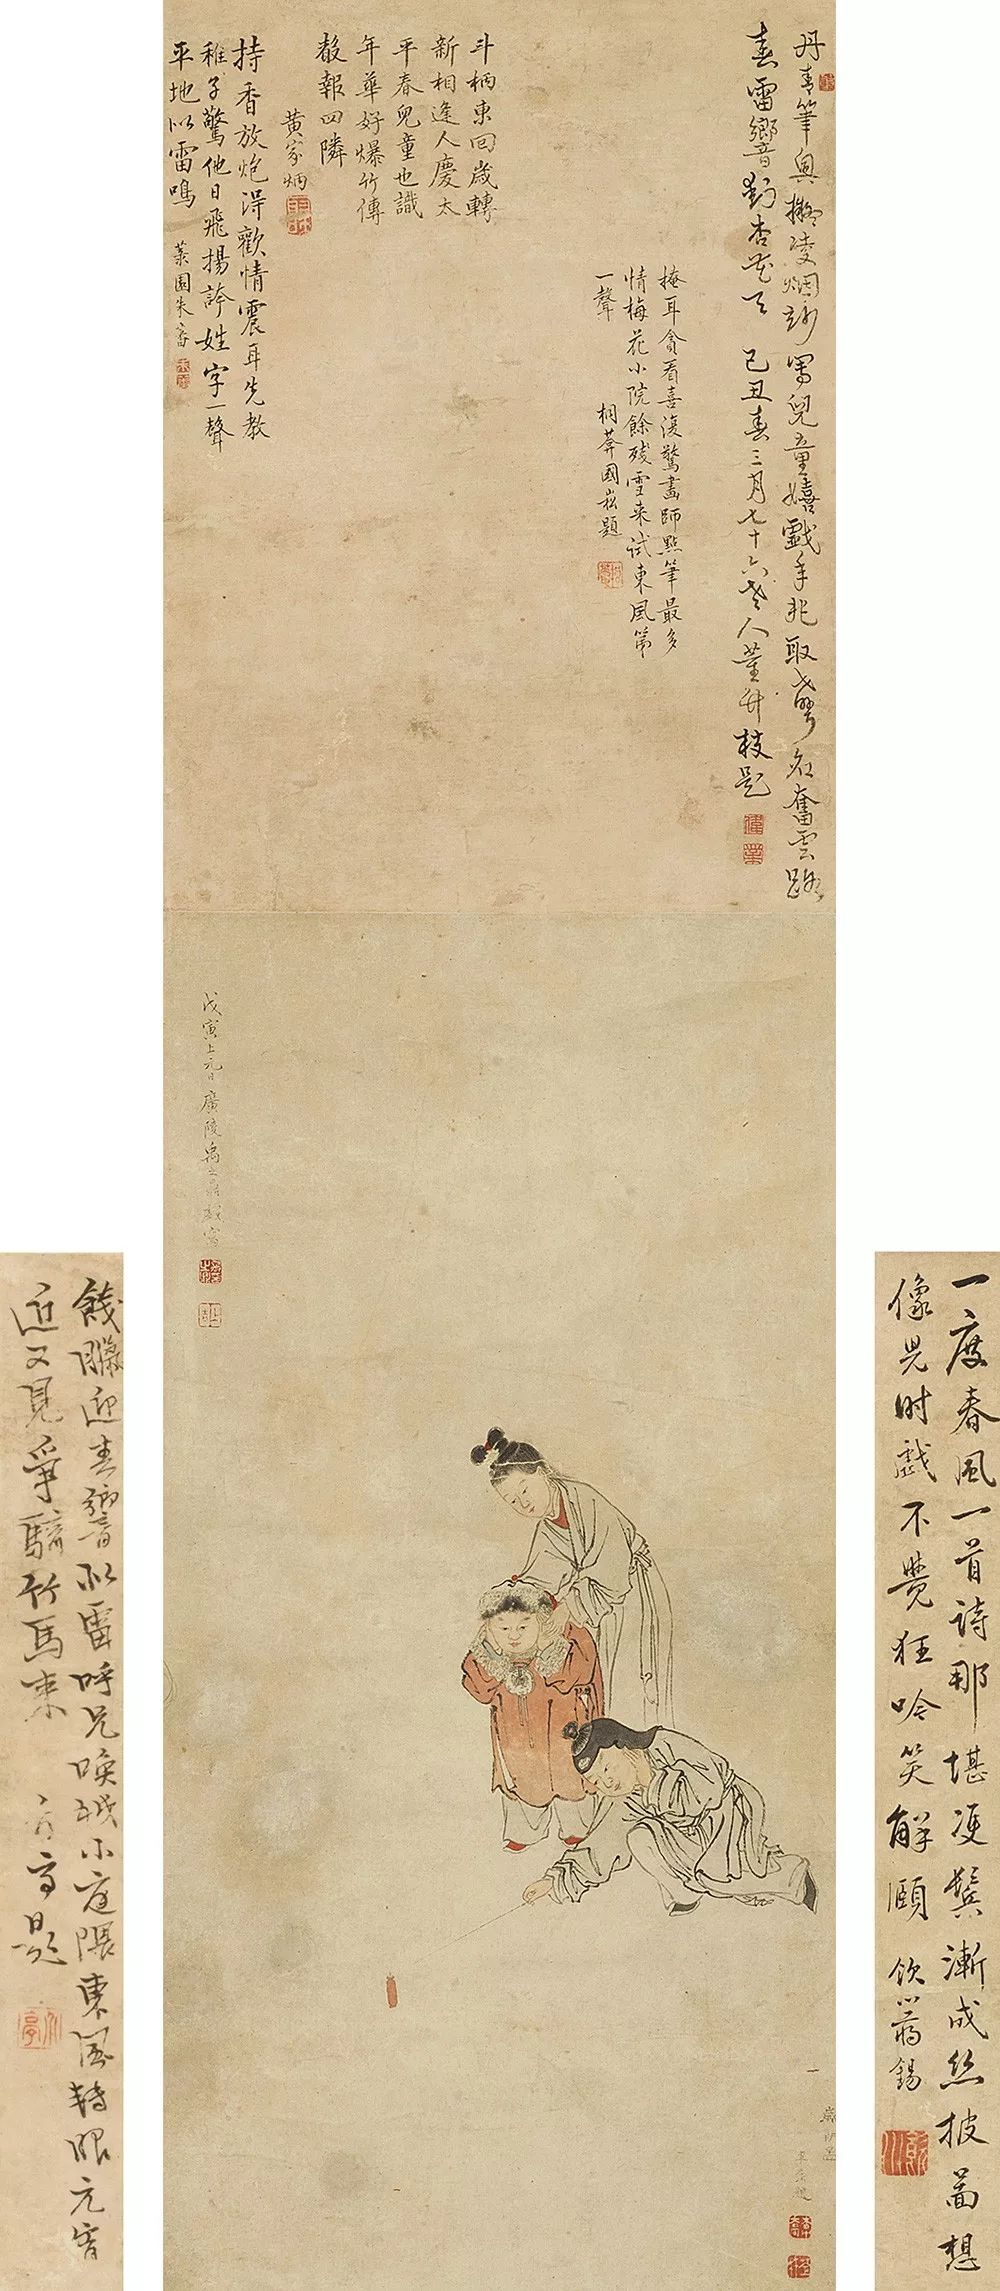 丹青筆與擬凌烟詠寫兒童嬉戲年兆取聲名奮雲路
春雷響對杏花天 己丑春三月七十六老人董升枝題
掩耳貪看喜復驚畫師點筆最多
情梅花小院餘殘雪來試東風第
一聲
桐莽國崧題
斗柄東回歲轉
新相逢人慶太
平春兒童也識
年華好爆竹傳
馨報四隣
黃家炳
持香放炮浔歡情震耳先教
稚子驚他日飛揚誇姓字一聲
平地似雷鳴
葉園朱
戊寅上元日廣陵禹之鼎戲寫
一度春風一首詩那堪便鬢漸成絲披圖想
像兒時戲不覺狂吟笑解頤 飲山蔣錫
餞臘迎春響似雷呼兄喚城小庭隈東風轉眼元宵
近又見爭騎竹馬來